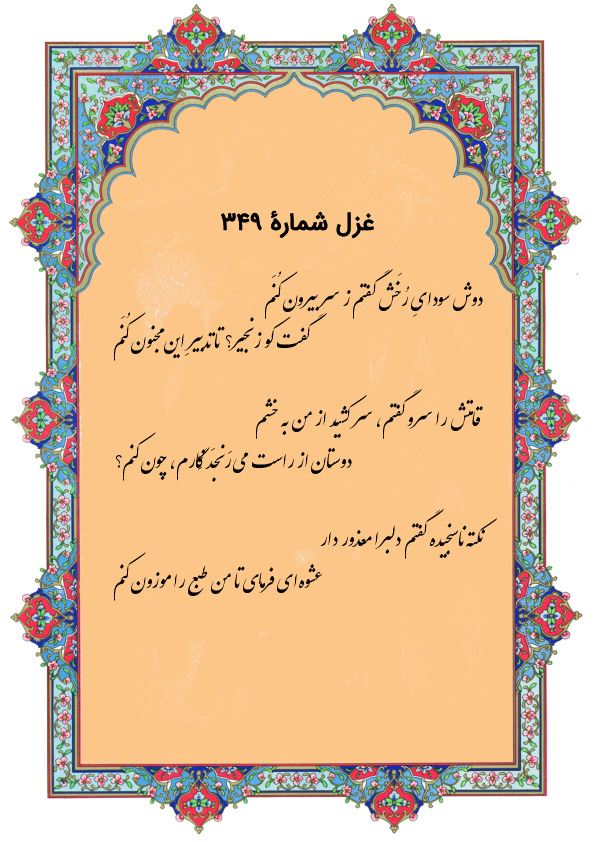 غزل شمارهٔ ۳۴۹
دوش سودایِ رُخَش گفتم ز سر بیرون کُنَم
گفت کو زنجیر؟ تا تدبیرِ این مجنون کُنَم
قامتش را سرو گفتم، سر کشید از من به خشم
دوستان از راست می‌رَنجَد نِگارم، چون کنم؟
نکته ناسنجیده گفتم دلبرا معذور دار
عشوه‌ای فرمای تا من طبع را موزون کنم